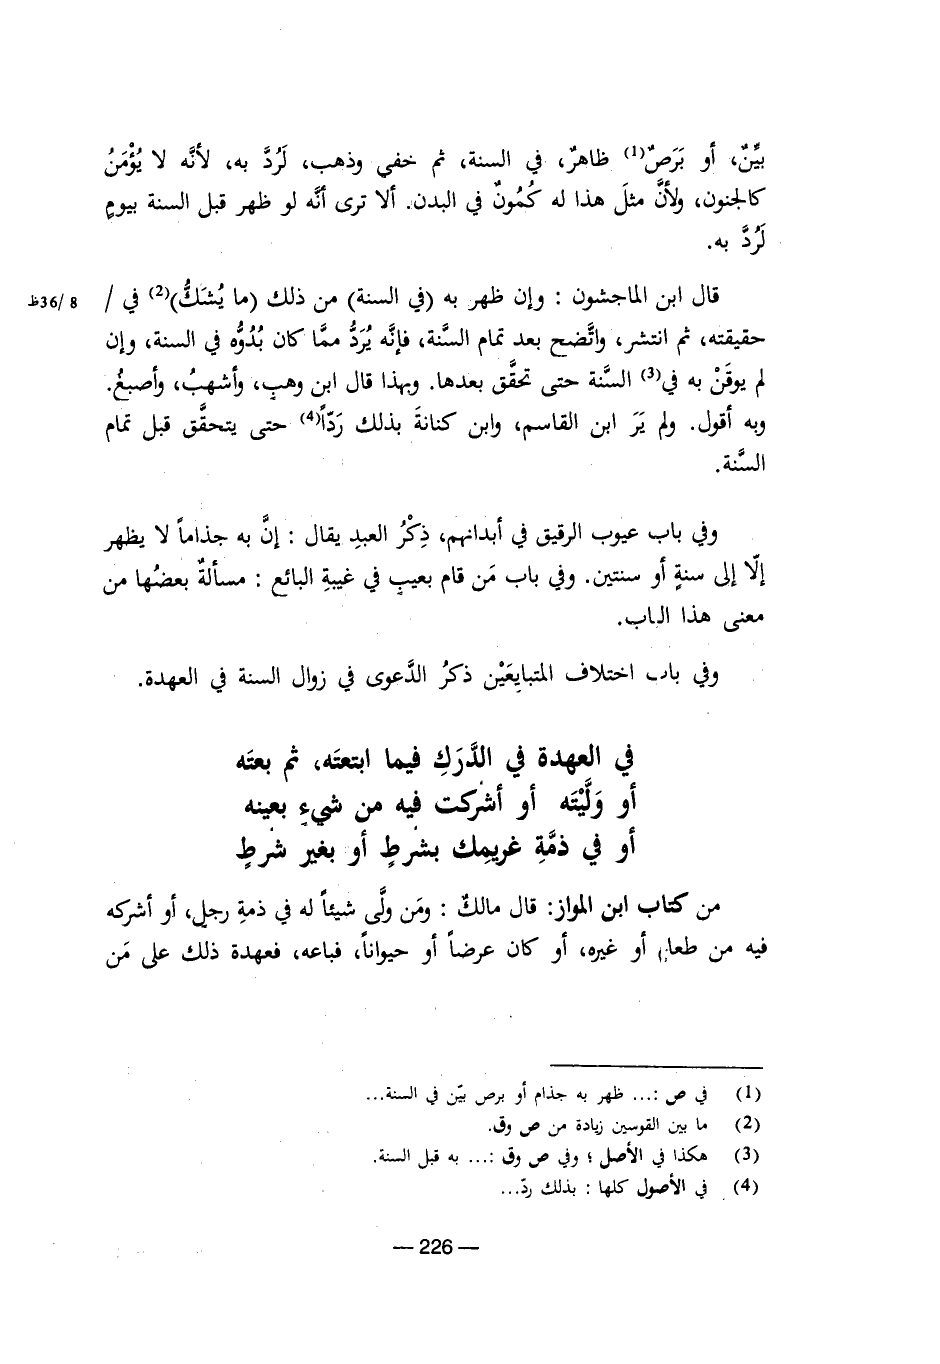 بيِّنٌ، أو بَرَصٌ(1) ظاهرٌ، في السنة، ثم خفي وذهب، لَرُدَّ به، لأنَّه لا يُؤْمَنُ
كالجنون، ولأنَّ مثلَ هذا له كُمُونٌ في البدن. ألا ترى أنَّه لو ظهر قبل السنة بيومٍ
لَرُدَّ به.
قال ابن الماجشون : وإن ظهر به (في السنة) من ذلك (ما يُشَكُّ)(2) في / 8 /36ظ
حقيقته، ثم انتشر، واتَّضح بعد تمام السَّنة، فإنَّه يُرَدُّ ممَّا كان بُدُوُّه في السنة، وإن
لم يوقَنْ به في(3) السَّنة حتى تحقَّق بعدها. وبهذا قال ابن وهبٍ، وأشهبُ، وأصبغُ.
وبه أقول. ولم يَرَ ابن القاسم، وابن كنانةَ بذلك رَدّاً(4) حتى يتحقَّق قبل تمام
السَّنة.
وفي باب عيوب الرقيق في أبدانهم، ذِكْرُ العبدِ يقال : إنَّ به جذاماً لا يظهر
إلّا إلى سنةٍ أو سنتين. وفي باب مَن قام بعيبٍ في غيبةِ البائع : مسألةٌ بعضُها من
معنى هذا الباب.
وفي باب اختلاف المتبايِعَيْن ذكرُ الدَّعوى في زوال السنة في العهدة.
في العهدة في الدَّرَكِ فيما ابتعتَه، ثم بعتَه
أو وَلَّيْتَه أو أشركت فيه من شيءٍ بعينه
أو في ذمَّةِ غريمِك بشرطٍ أو بغير شرطٍ
من كتاب ابن المواز: قال مالكٌ : ومَن ولَّى شيئاً له في ذمةِ رجلٍ، أو أشركه
فيه من طعامٍ أو غيره، أو كان عرضاً أو حيواناً، فباعه، فعهدة ذلك على مَن
(1) في ص :... ظهر به جذام أو برص بيّن في السنة...
(2) ما بين القوسين زيادة من ص وق.
(3) هكذا في الأصل ؛ وفي ص وق :... به قبل السنة.
(4) في الأصول كلها : بذلك ردّ...
— 226 —